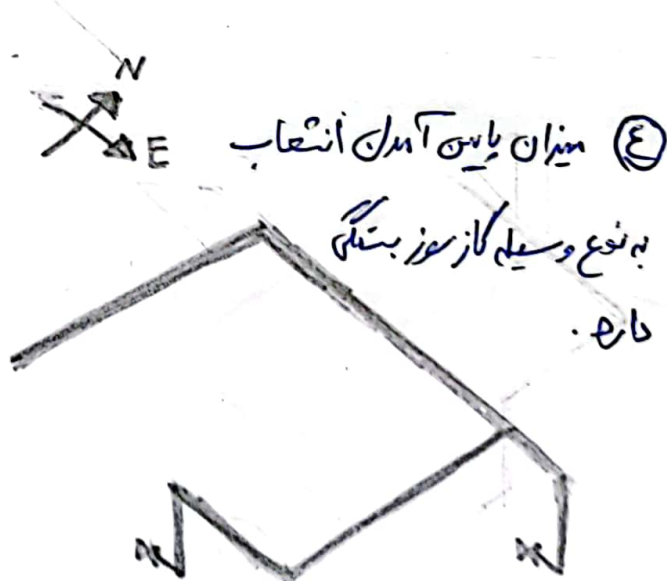 N
E
④ میزان پایین آمدن انشعاب
به نوع وسیله گازسوز بستگی
دارد.